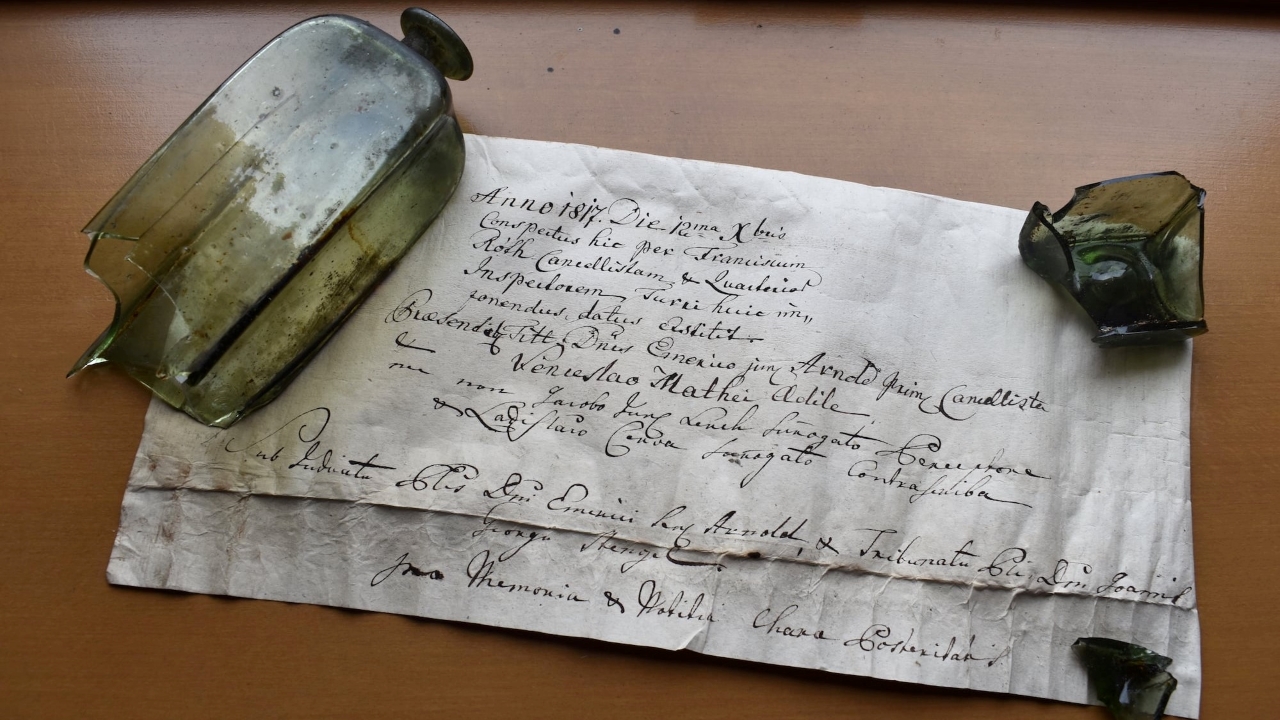 Anno 1817. Die 12ma Xbris
Conspectus hic per Franciscum
Róth Cancellistam & Quartirior
Inspectorem Turri huic im„
ponendus datus exstitit.
Præsendq Titt. Dnis Emerico jun Arnold prim Cancellista
Venceslao Mathei Ædile
me non Jacobo Junj Lench surrogato Perceptore
& Ladislao Cerva surrogato Contrascriba
Sub Judicatu Plis Dni Emerici Senj Arnold, & Tribunatu Plis Dni Joannis
Georgii Stengel
Pro Memoria & Notitia Chara Posteritatis